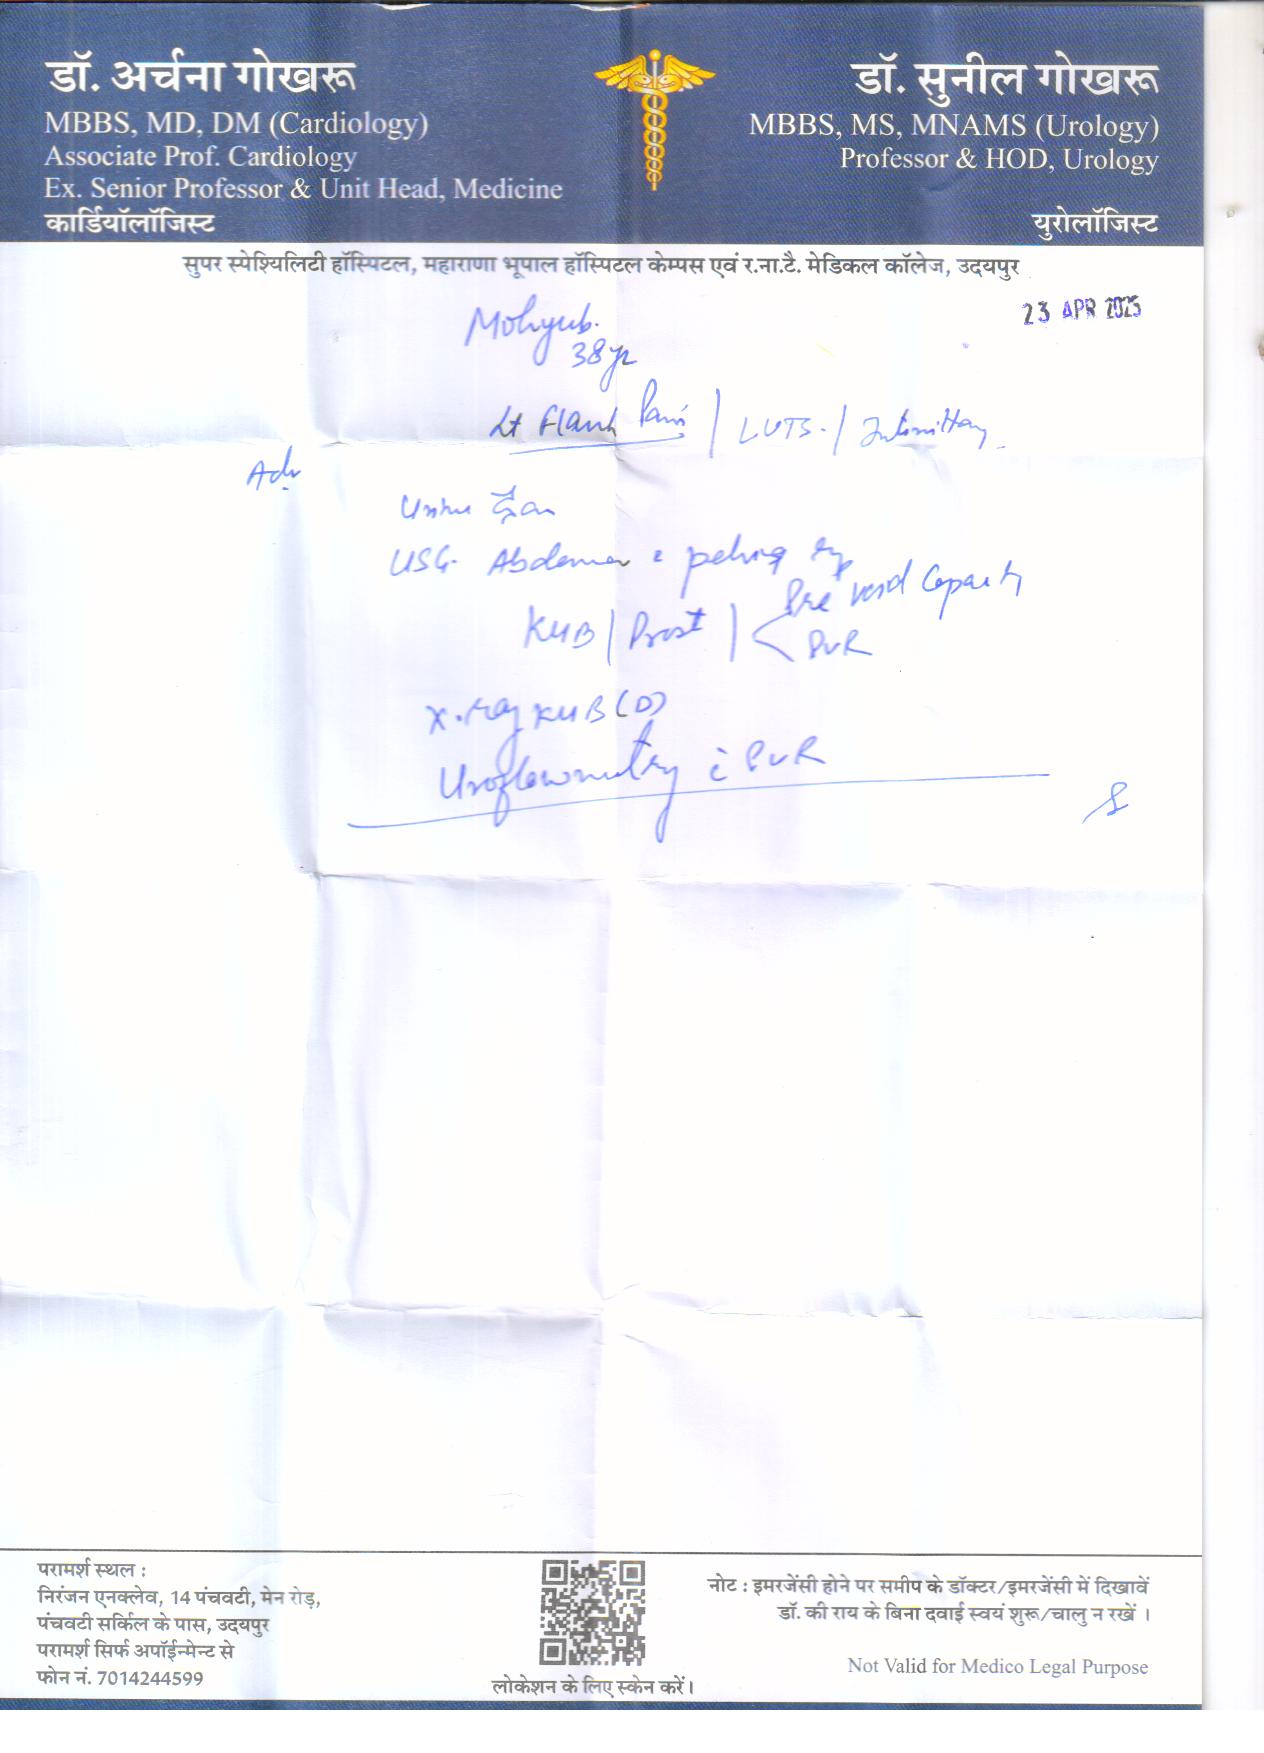 डॉ. अर्चना गोखरू
MBBS, MD, DM (Cardiology)
Associate Prof. Cardiology
Ex. Senior Professor & Unit Head, Medicine
कार्डियॉलॉजिस्ट
डॉ. सुनील गोखरू
MBBS, MS, MNAMS (Urology)
Professor & HOD, Urology
युरोलॉजिस्ट
सुपर स्पेश्यिलिटी हॉस्पिटल, महाराणा भूपाल हॉस्पिटल केम्पस एवं र.ना.टै. मेडिकल कॉलेज, उदयपुर
23 APR 2025
38 yr
Lt Flank Pain / LUTS. / Intermittency
Adv
Urine
USG. Abdomen c pelvis
KUB / Prost / < Pre void Capacity
PVR
X-ray KUB (D)
Uroflowmetry c PVR
परामर्श स्थल :
निरंजन एनक्लेव, 14 पंचवटी, मेन रोड़,
पंचवटी सर्किल के पास, उदयपुर
परामर्श सिर्फ अपॉईन्मेन्ट से
फोन नं. 7014244599
लोकेशन के लिए स्केन करें।
नोट : इमरजेंसी होने पर समीप के डॉक्टर/इमरजेंसी में दिखावें
डॉ. की राय के बिना दवाई स्वयं शुरू/चालु न रखें ।
Not Valid for Medico Legal Purpose